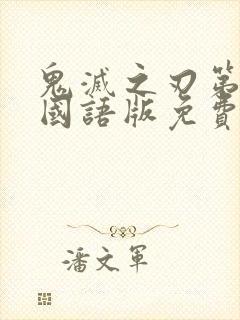 鬼滅之刃第
國語版免費
潘文軍